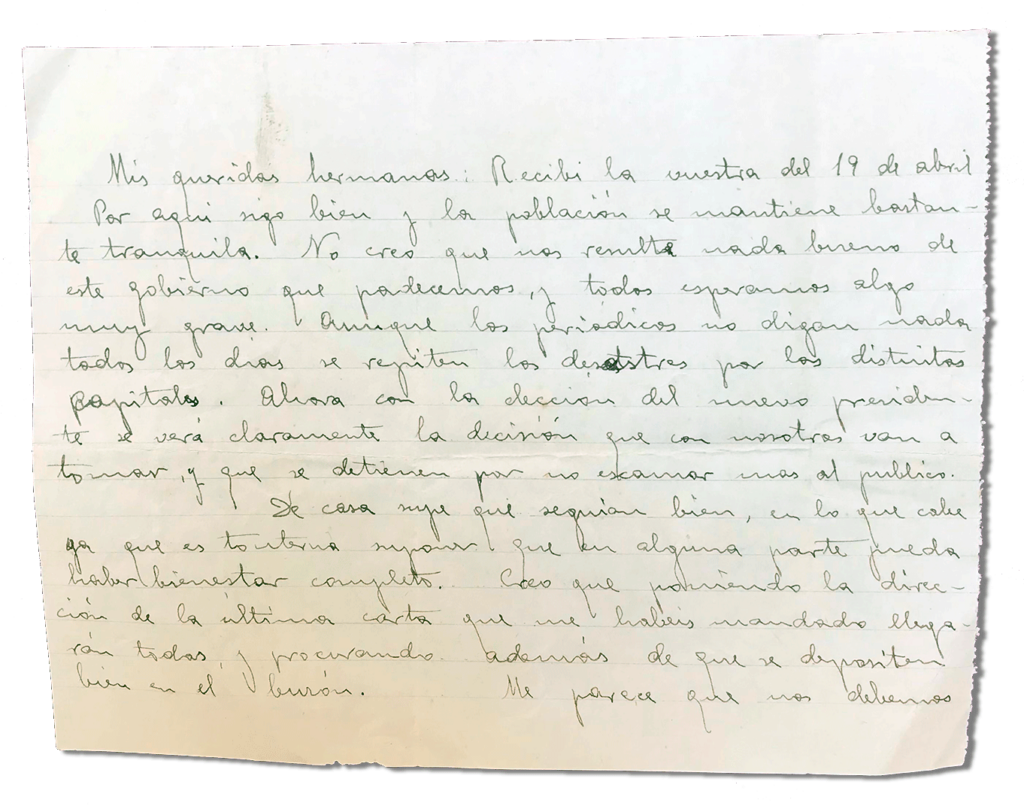 Mis queridas hermanas: Recibi la vuestra del 19 de abril
Por aqui sigo bien y la población se mantiene bastan-
te tranquila. No creo que nos resulte nada bueno de
este gobierno que padecemos, y todos esperamos algo
muy grave. Aunque los periódicos no digan nada
todos los dias se repiten los desastres por las distintas
capitales. Ahora con la elección del nuevo presiden-
te se verá claramente la decisión que con nosotros van a
tomar, y que se detienen por no escamar mas al publico.
De casa supe que seguian bien, en lo que cabe
ya que es tonteria suponer que en alguna parte pueda
haber bienestar completo. Creo que poniendo la direc-
ción de la última carta que me habéis mandado llega-
rán todas, y procurando además de que se depositen
bien en el buzón. Me parece que nos debemos